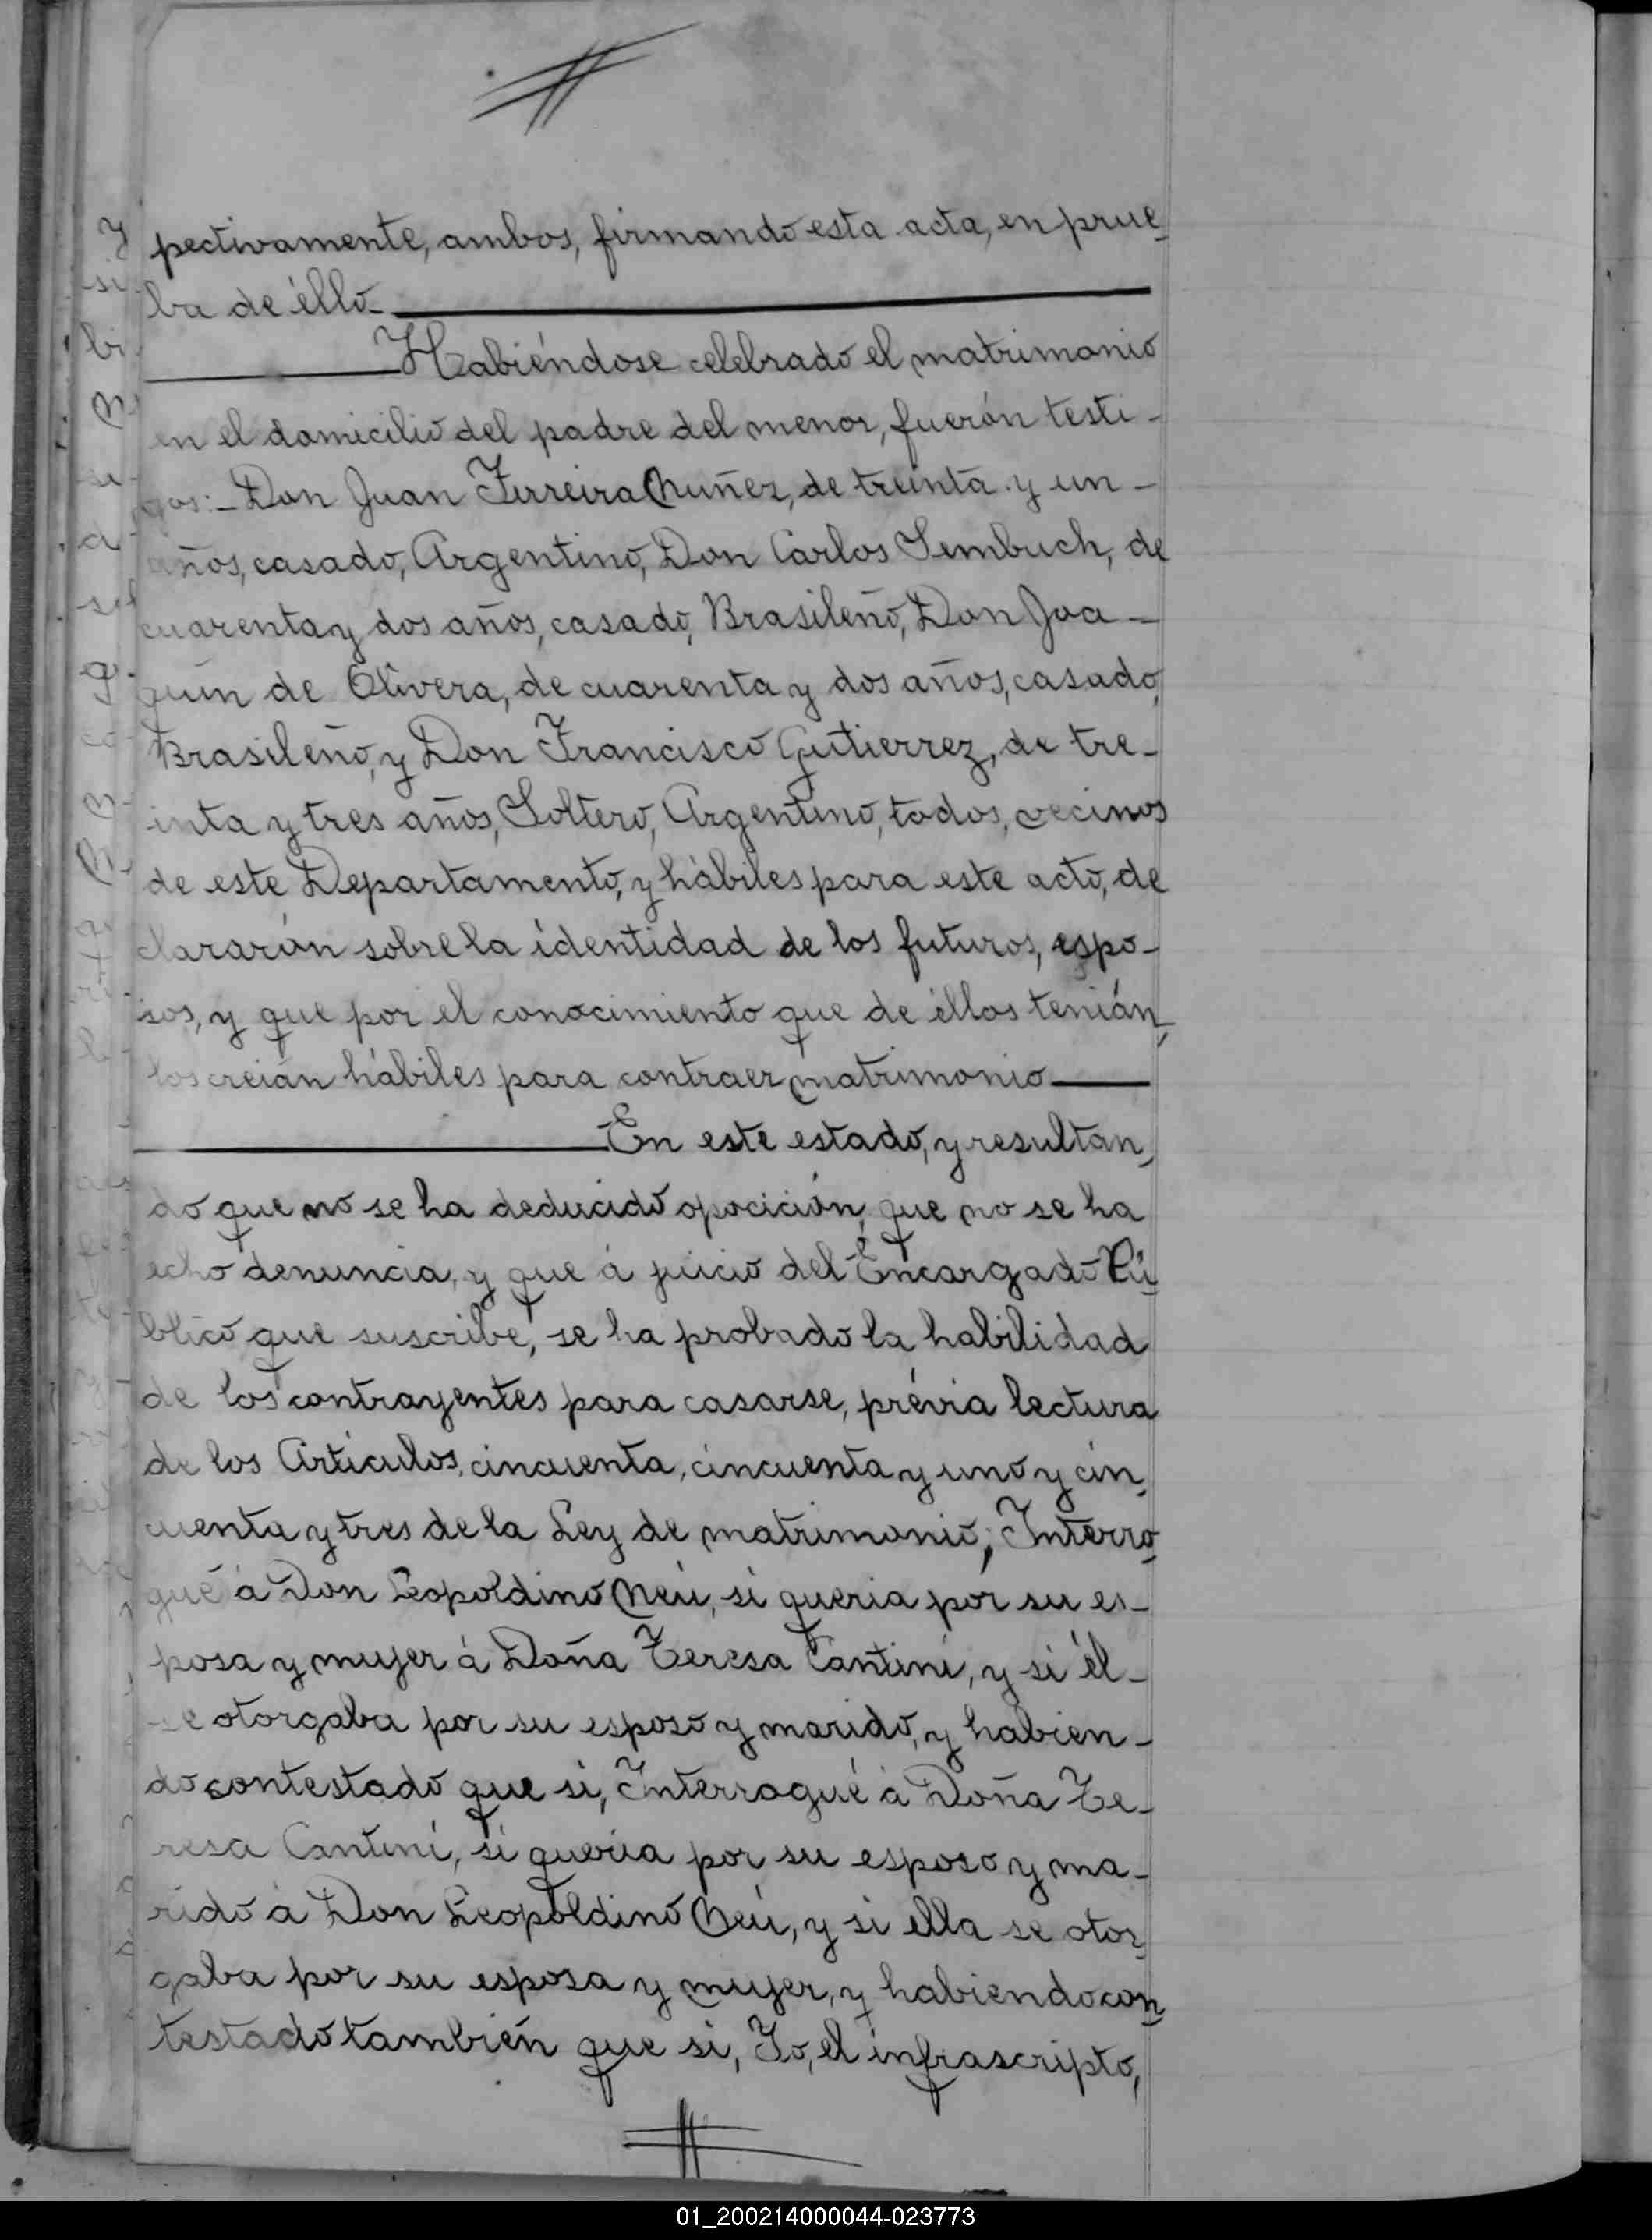 pectivamente, ambos, firmando esta acta, en prue-
ba de éllo-
Habiéndose celebrado el matrimonio
en el domicilio del padre del menor, fuerón testi-
gos:- Don Juan Ferreira Nuñez, de treinta y un-
años, casado, Argentino, Don Carlos Sembuch, de
cuarenta y dos años, casado, Brasileño, Don Joa-
quin de Olivera, de cuarenta y dos años, casado,
Brasileño, y Don Francisco Gutierrez, de tre-
inta y tres años, Soltero, Argentino, todos, vecinos
de este Departamento, y hábiles para este acto, de
clararón sobre la identidad de los futuros, espo-
sos, y que por el conocimiento que de éllos tenián,
los creián hábiles para contraer matrimonio
En este estado, y resultan-
do que no se ha deducido oposición, que no se ha
echo denuncia, y que á juicio del Encargado Pú-
blico que suscribe, se ha probado la habilidad
de los contrayentes para casarse, prévia lectura
de los Artículos, cincuenta, cincuenta y uno y cin-
cuenta y tres de la Ley de matrimonio; Interro-
gué á Don Leopoldino Neú, si queria por su es-
posa y mujer á Doña Teresa Cantini, y si él-
se otorgaba por su esposo y marido, y habien-
do contestado que si, Interrogué á Doña Te-
resa Cantini, si queria por su esposo y ma-
rido á Don Leopoldino Neú, y si ella se otor-
gaba por su esposa y mujer, y habiendo con-
testado también que si, Yo, el infrascripto,
01_200214000044-023773